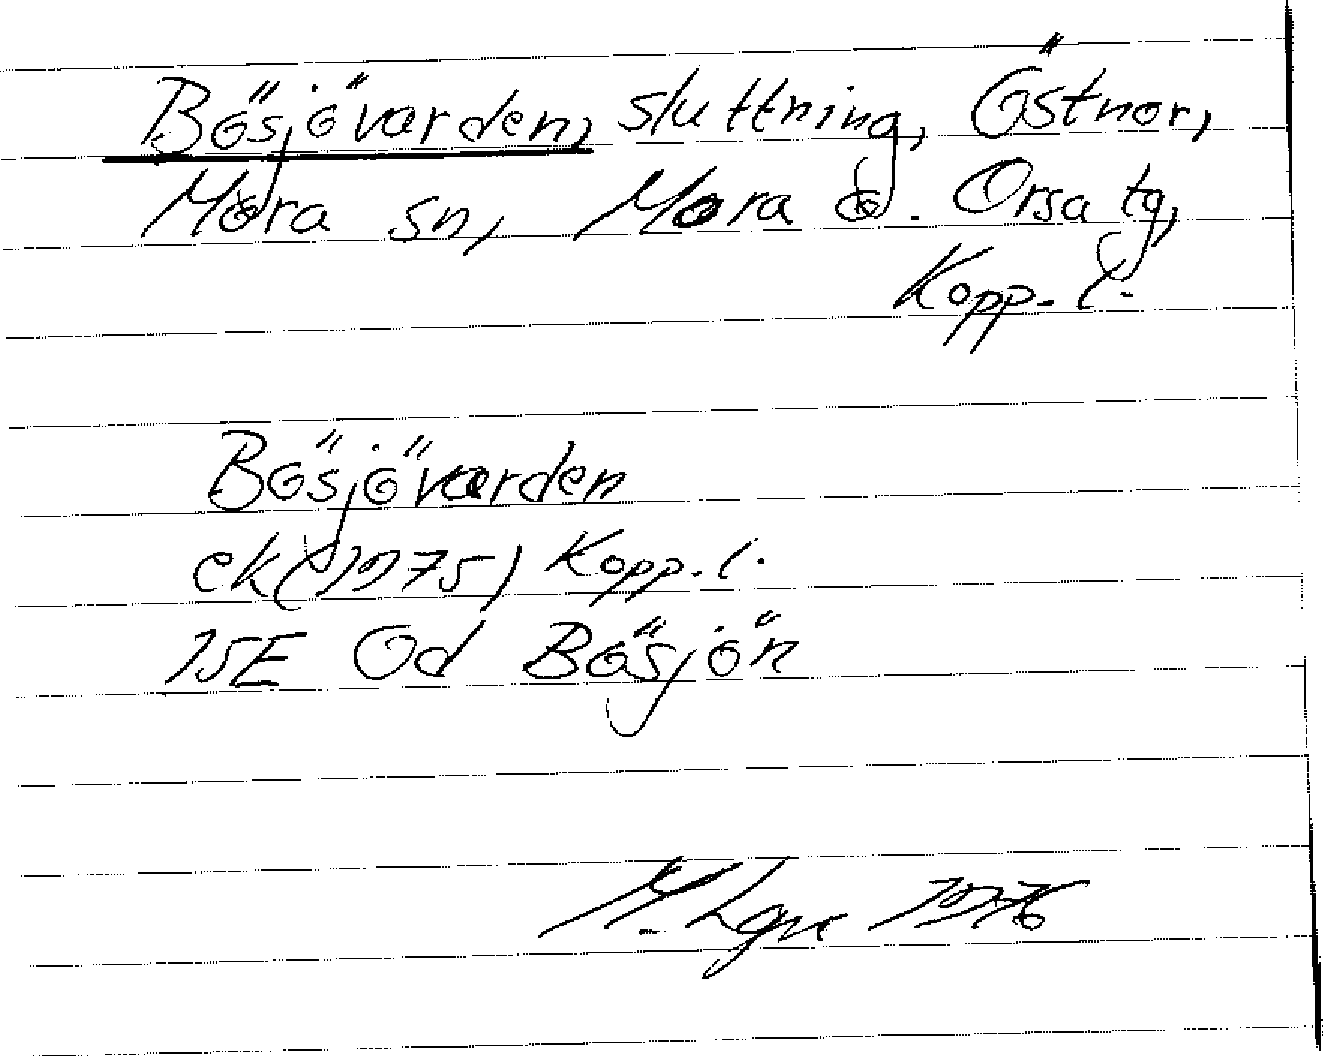 Bösjövarden, sluttning, Östnor,
Mora sn, Mora o. Orsa tg,
Kopp. l.
Bösjövarden
ek (1975) Kopp. l.
15E Od Bösjön
1976